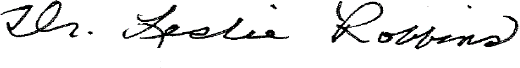 Dr. Leslie Robbins